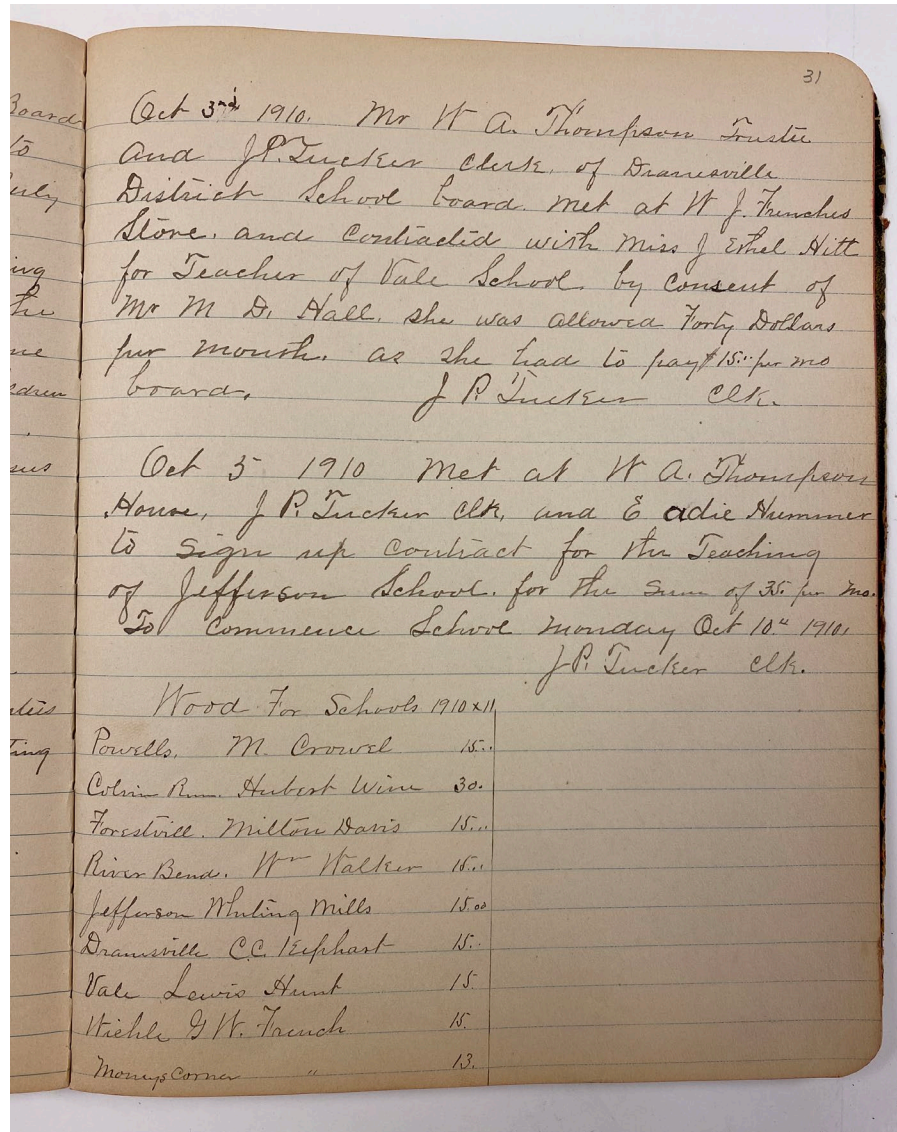 Board
to
July
ing
the
me
ldren
sus
ating
31
Oct 3rd 1910. Mr W A. Thompson Trustee
and J P. Tucker Clerk. of Dranesville
District School board. met at W J. Frenches
Store. and contracted with Miss J Ethel Hitt
for Teacher of Vale School by consent of
Mr M D. Hall. she was allowed Forty Dollars
per month. as she had to pay $15.. per mo
board. J P. Tucker Clk.
Oct 5 1910 Met at W A. Thompson
House, J P. Tucker Clk, and E adie Hummer
to sign up contract for the Teaching
of Jefferson School. for the sum of 35. per mo.
To commence School Monday Oct 10th 1910.
J P. Tucker Clk.
Wood For Schools 1910 x 11
Powells. M. Crowel 15..
Colvin Run. Hubert Wine 30.
Forestvill. Milton Davis 15..
River Bend. Wm Walker 15..
Jefferson Whiting Mills 15.00
Dransville C.C. Kephart 15..
Vale Lewis Hunt 15.
Wiehle G W. French 15.
Moneys Corner " 13.